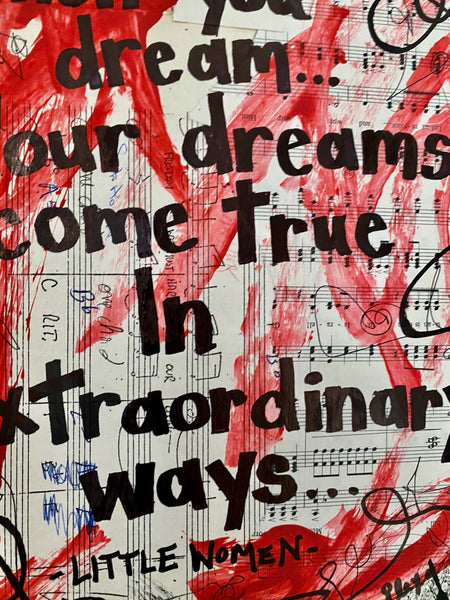 hen you
dream...
our dreams
come true
In
xtraordinary
ways...
-LITTLE WOMEN-